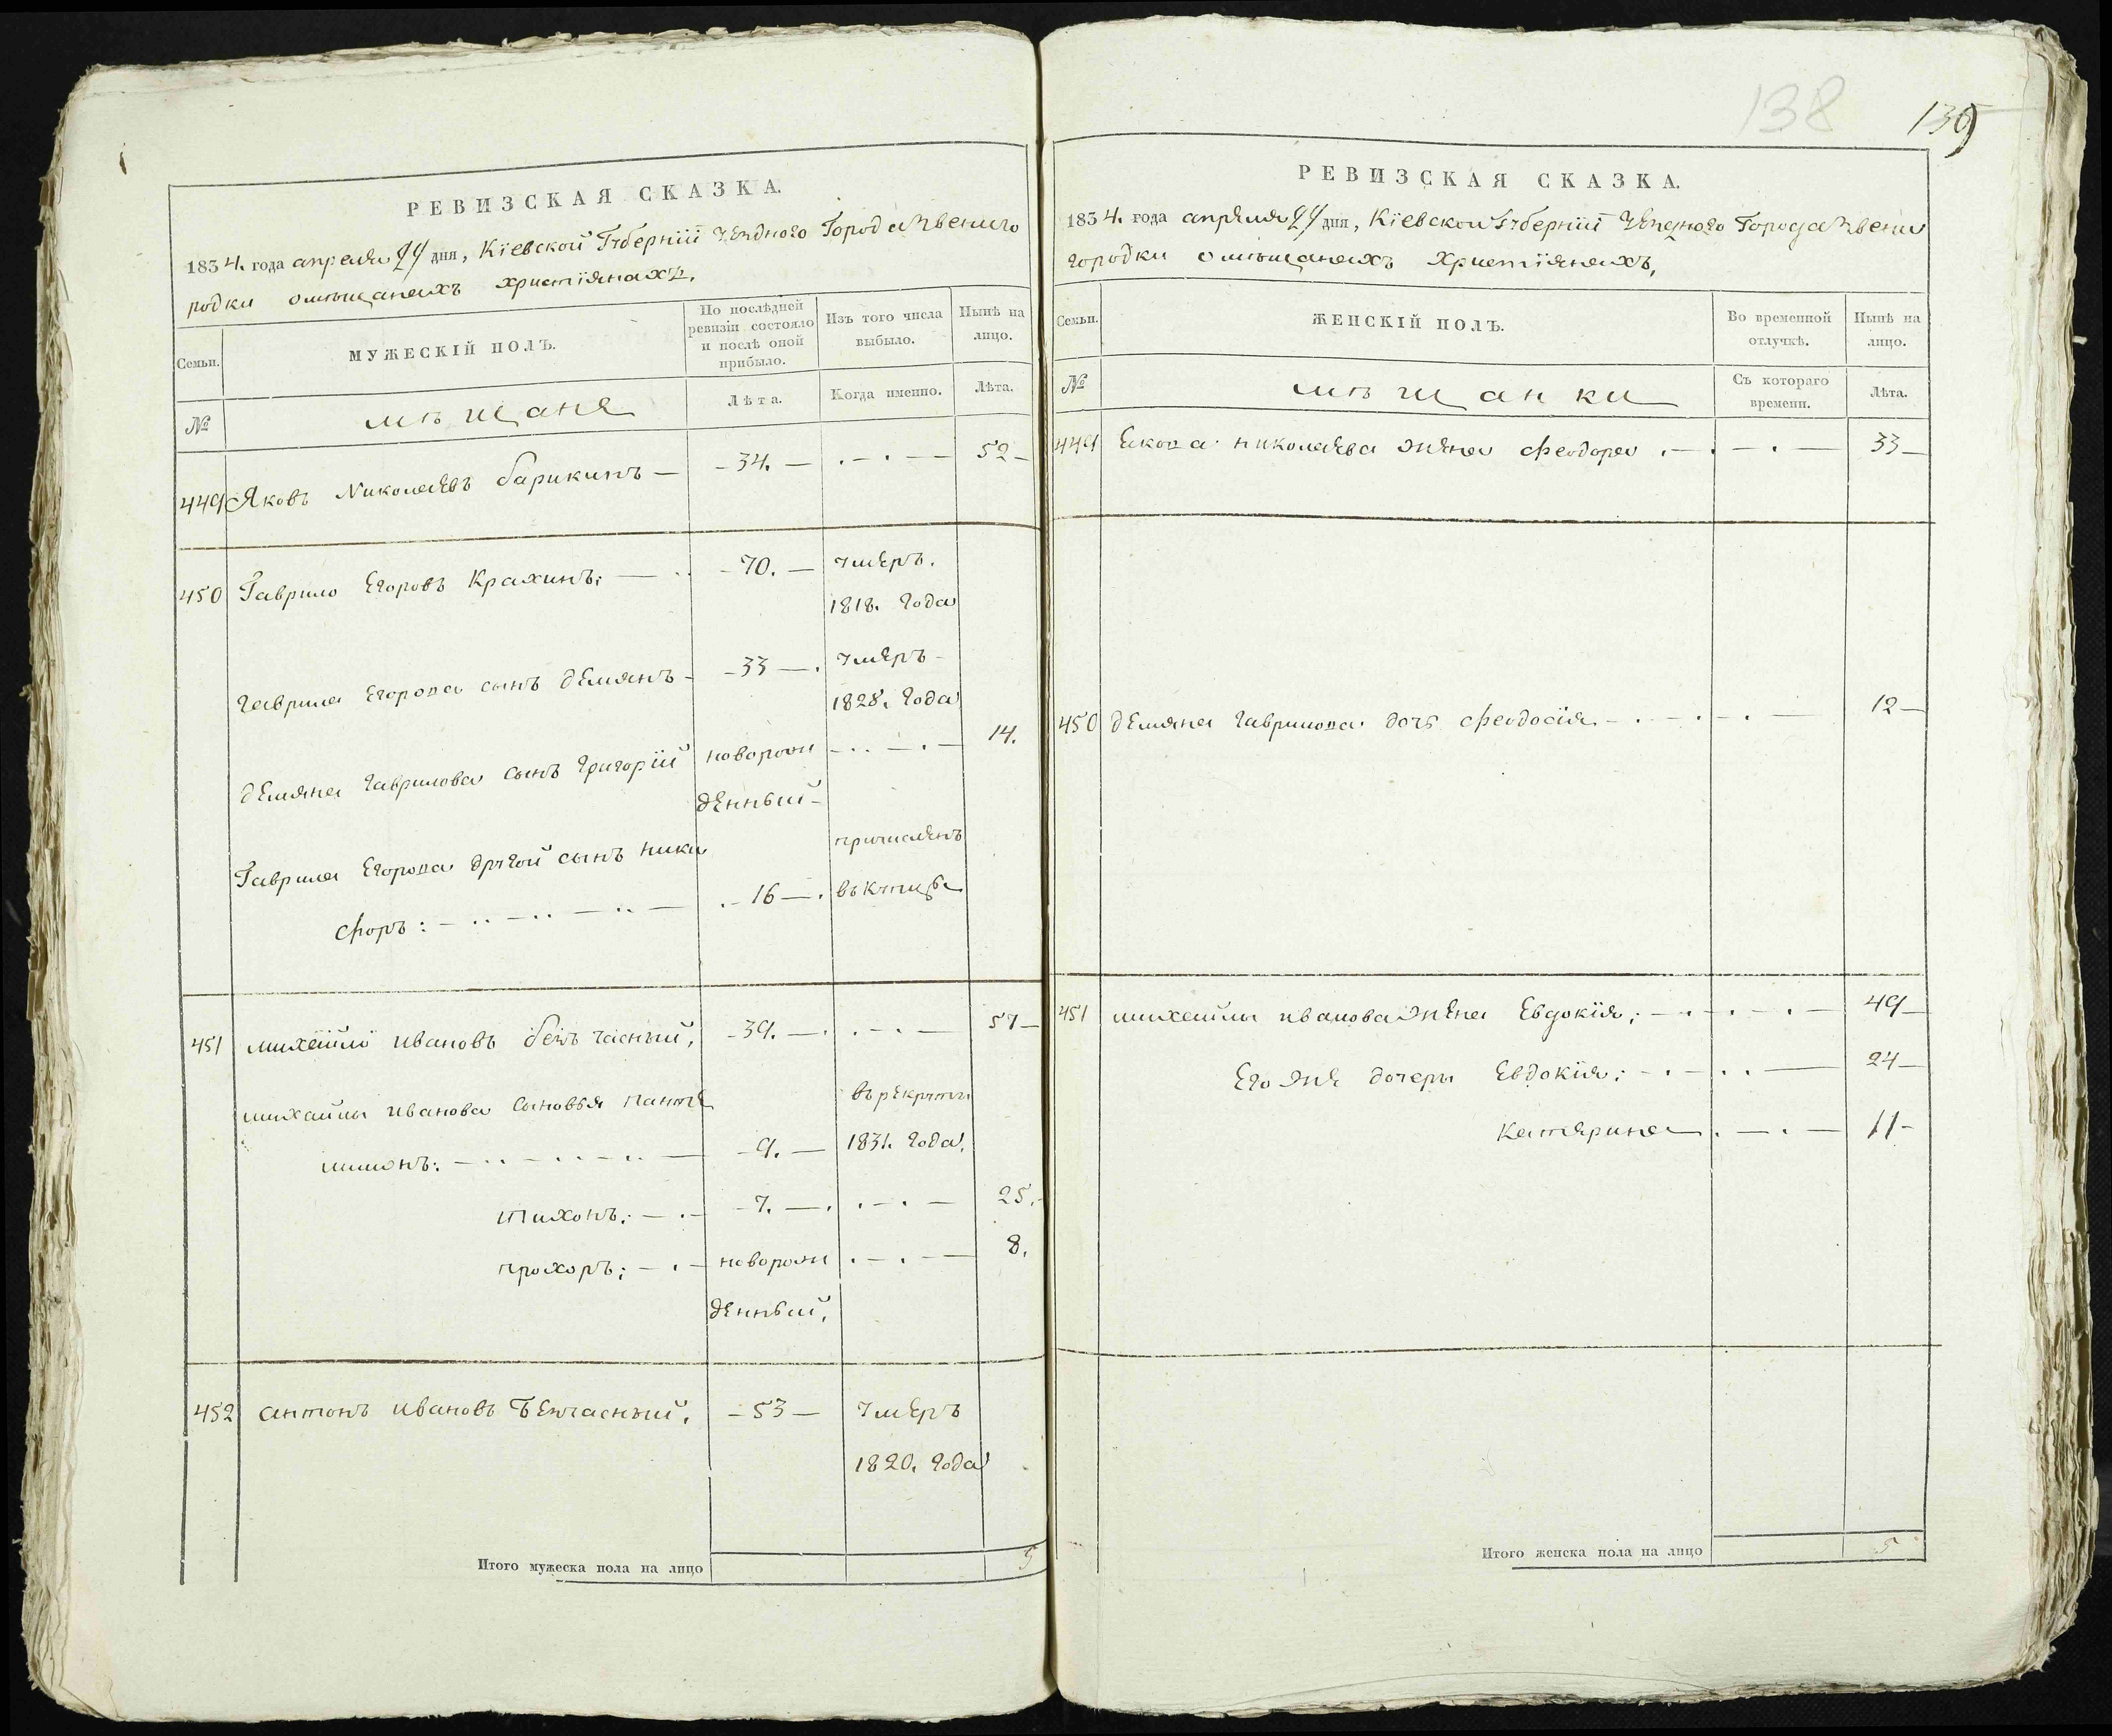 138
139
РЕВИЗСКАЯ СКАЗКА.
1834. года апреля 24 дня, Кіевской Губерніи уезднаго Города Звениго
родки омѣщанахъ христіянахъ,
Семьи.
МУЖЕСКІЙ ПОЛЪ.
По послѣдней ревизіи состояло и послѣ оной прибыло.
Изъ того числа выбыло.
Нынѣ на лицо.
№
мѣщане
Лѣта.
Когда именно.
Лѣта.
449 Яковъ Николаевъ барикинъ — 34. — 52
450 Гаврило Егоровъ Крахинъ: — 70. — умеръ.
1818. года
гаврила Егорова сынъ демянъ — 33 — умеръ
1828. года
демяна гаврилова сынъ григорій новорож — 14.
денный
Гаврила Егорова другой сынъ ники
причисленъ
форъ: — 16 — вкупцы
451 михайло ивановъ безчасный, 39. — 57
михайлы иванова сыновья панте
врекруты
лимонъ: — 9. — 1831. года,
тихонъ: — 7. — 25.
прохоръ; — новорож — 8.
денный,
452 антонъ ивановъ Безчасный, — 53 — умеръ
1820. года
Итого мужеска пола на лицо 5
РЕВИЗСКАЯ СКАЗКА.
1834. года апреля 24 дня, Кіевской Губерніи уезднаго Города Звени
городки омѣщанахъ христіянахъ,
Семьи.
ЖЕНСКІЙ ПОЛЪ.
Во временной отлучкѣ.
Нынѣ на лицо.
№
мѣщанки
Съ котораго времени.
Лѣта.
449 Якова николаева жена феодора — 33
450 демяна гаврилова дочь феодосія — 12
451 михайлы иванова жена Евдокія; — 49
Его же дочери Евдокія; — 24
Катерина — 11
Итого женска пола на лицо 5